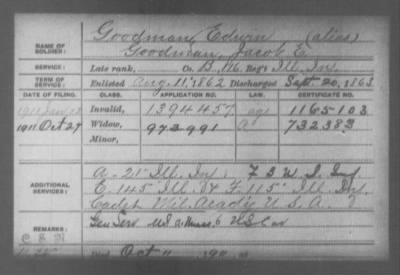 NAME OF SOLDIER: Goodman, Edwin (alias)
Goodman, Jacob E.
SERVICE: Late rank, Co. B, 116 Reg't Ill. Inf.
TERM OF SERVICE: Enlisted Aug. 11, 1862 Discharged Sept. 20, 1863
DATE OF FILING. CLASS. APPLICATION NO. LAW. CERTIFICATE NO.
Invalid, 1394457 1165103
1911 Oct 27 Widow, 973991 732383
Minor,
ADDITIONAL SERVICES: A-21" Ill. Inf. F 3 U.S. Inf
E-145 Ill. & F-115" Ill. Inf.
Cadet Mil. Acady U.S.A.
REMARKS: Gen Serv U.S. 6 US Cav
C & N
Died Oct 11 190